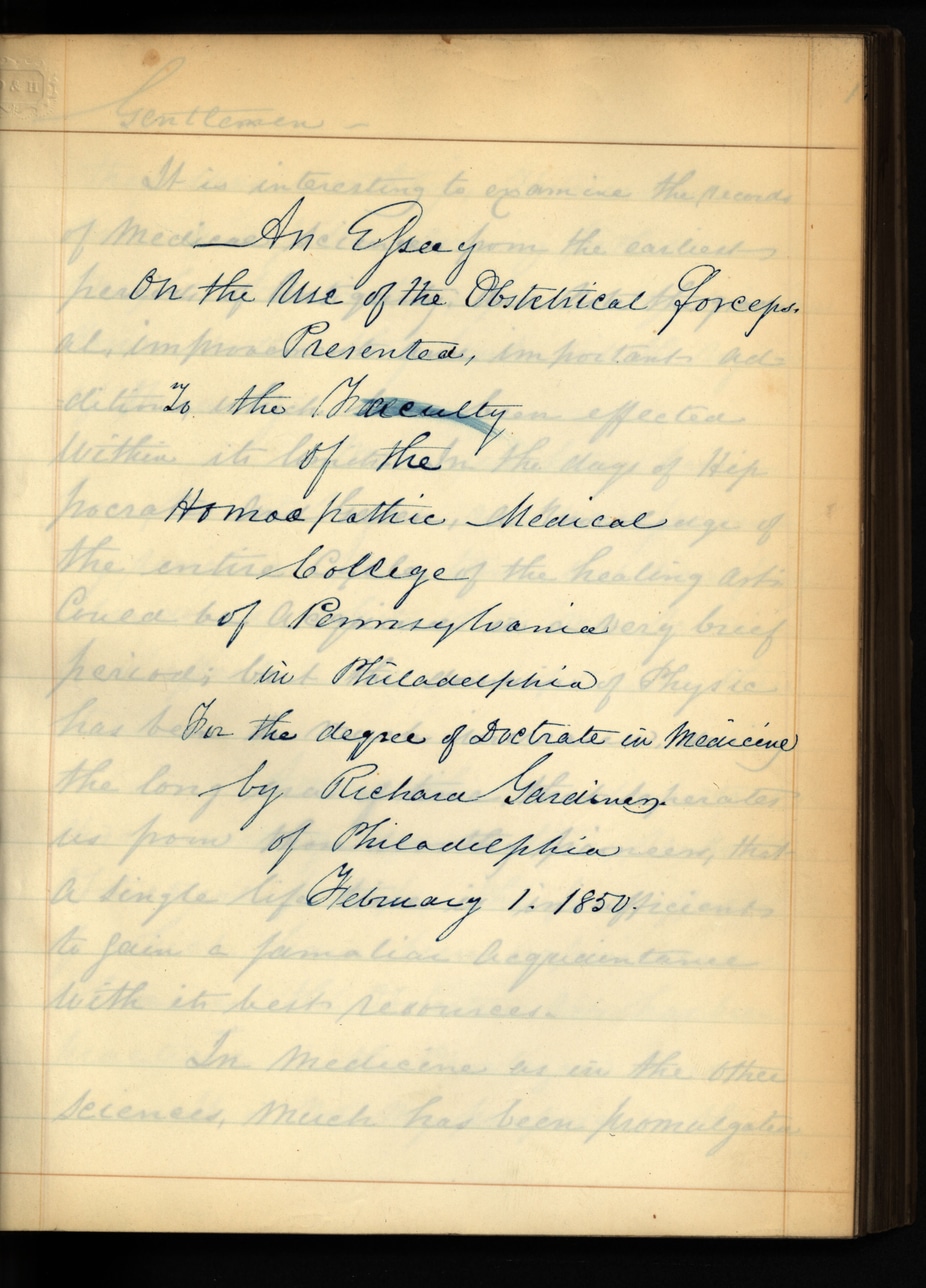 An Essay
On the Use of the Obstetrical Forceps.
Presented,
To the Faculty
of the
Homoeopathic Medical
College
of Pennsylvania
in Philadelphia
For the degree of Doctrate in Medicine
by Richard Gardiner.
of Philadelphia
February 1. 1850.
Gentlemen —
It is interesting to examine the records
of from the earliest
al, important ad
effected
Within its In the days of Hip
of
the entire of the healing art
Could be very brief
period; but of Physic
has
the long
us from that
a single
to gain a familiar acquaintance
with its best resources.
In Medicine as in the other
sciences, much has been promulgated